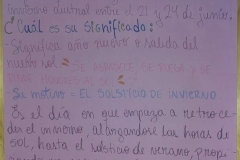 invierno austral entre el 21 y 24 de junio.
¿Cuál es su significado:
-Significa año nuevo o salida del
nuevo sol
-Su motivo - EL SOLSTICIO DE INVIERNO
Es el día en que empieza a retroce-
der el invierno, alargandose las horas de
SOL, hasta el solsticio de verano, propi-